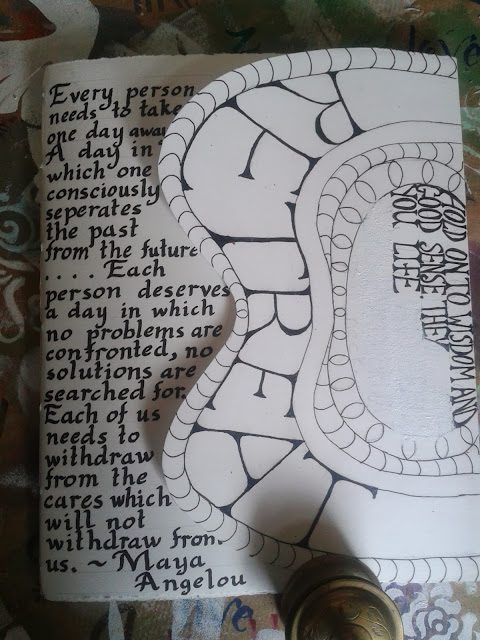 Every person
needs to take
one day away
A day in
which one
consciously
seperates
the past
from the future
. . . . Each
person deserves
a day in which
no problems are
confronted, no
solutions are
searched for.
Each of us
needs to
withdraw
from the
cares which
will not
withdraw from
us. ~ Maya
Angelou
RETREAT
HOLD ON TO WISDOM AND
GOOD SENSE. THEY
YOU LIFE